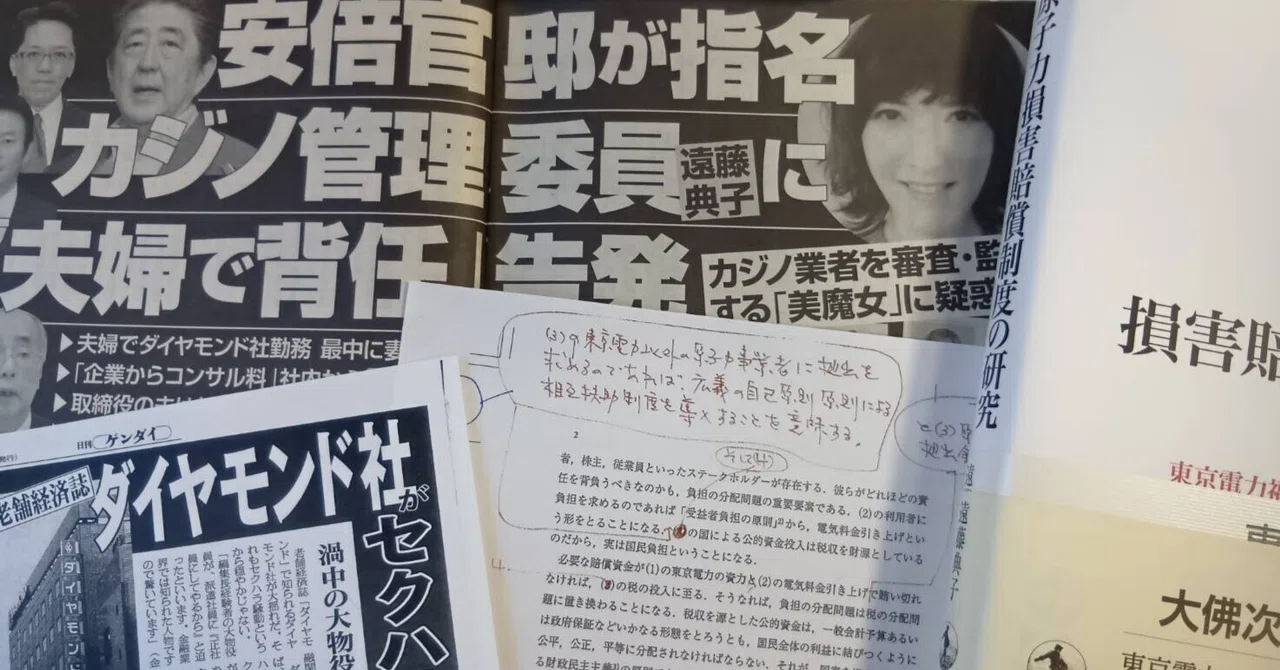 安倍官邸が指名
カジノ管理委員遠藤典子に
夫婦で背任告発
カジノ業者を審査・監
する「美魔女」に疑惑
▶夫婦でダイヤモンド社勤務 最中に妻
▶「企業からコンサル料」社内
▶取締役の
日刊ゲンダイ
老舗経済誌
ダイヤモンド社が
セクハ
渦中の大物役
老舗経済誌「ダイヤモ
ンド」で知られるダイヤ
モンド社が大揺れだ。そ
れもセクハラ騒動という
から穏やかじゃない。
「編集長経験者の大物役
員が、派遣社員に『正社
員にしてやるから』と迫
ったといいます。金融業
界では知られた人物です
ので驚いています」（金
ダイヤモンド
(3)の東京電力以外の原子力事業者に拠出を
求めるのであれば、広義の自己原則原則による
相互扶助制度を導入することを意味する。
2
そして(4)
者，株主，従業員といったステークホルダーが存在する．彼らがどれほどの責
任を背負うべきなのかも，負担の分配問題の重要要素である．(2)の利用者に
負担を求めるのであれば「受益者負担の原則」から，電気料金引き上げとい
う形をとることになる．
の国による公的資金投入は税収を財源としている
のだから，実は国民負担ということになる．
必要な賠償資金が(1)の東京電力の資力と(2)の電気料金引き上げで賄い切れ
なければ，(3)の税の投入に至る．そうなれば，負担の分配問題は税の分配問
題に置き換わることになる．税収を源とした公的資金は，一般会計予算あるい
は政府保証などいかなる形態をとろうとも，国民全体の利益に結びつくように
公平，公正，平等に分配されなければならない．それが，
る財政民主主義
と(3)
拠出金
原子力損害賠償制度の研究
遠藤典子
損害賠
東京電力福
大佛次
東京電